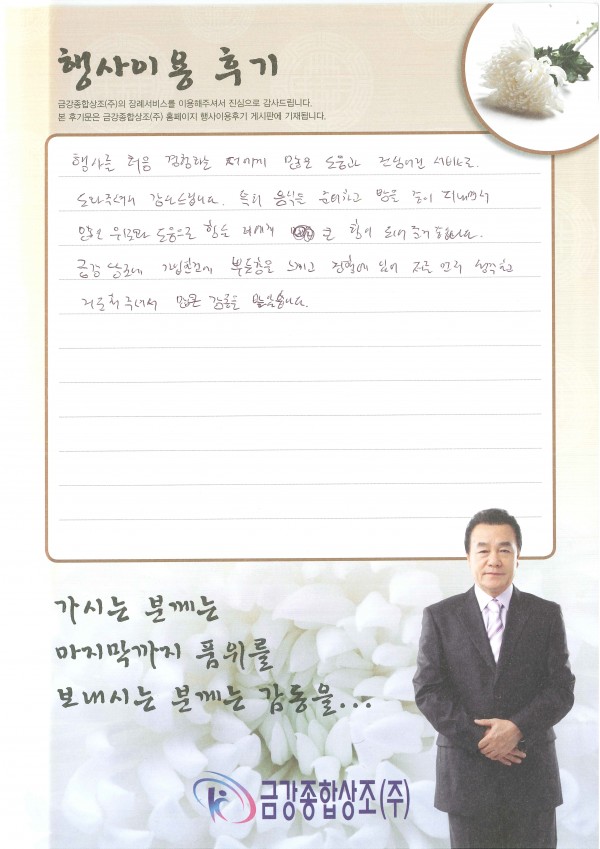 행사이용 후기
금강종합상조(주)의 장례서비스를 이용해주셔서 진심으로 감사드립니다.
본 후기문은 금강종합상조(주) 홈페이지 행사이용후기 게시판에 기재됩니다.
행사를 처음 경험하는 저에게 많은 도움과 서비스로
도와주셔서 감사드립니다. 특히 음식을 준비하고 밤을 같이 지내면서
많은 위로와 도움으로 저에게 큰 힘이 되어 주기
금강 상조에
많은 감동을 받았습니다.
가시는 분께는
마지막까지 품위를
보내시는 분께는 감동을...
금강종합상조(주)